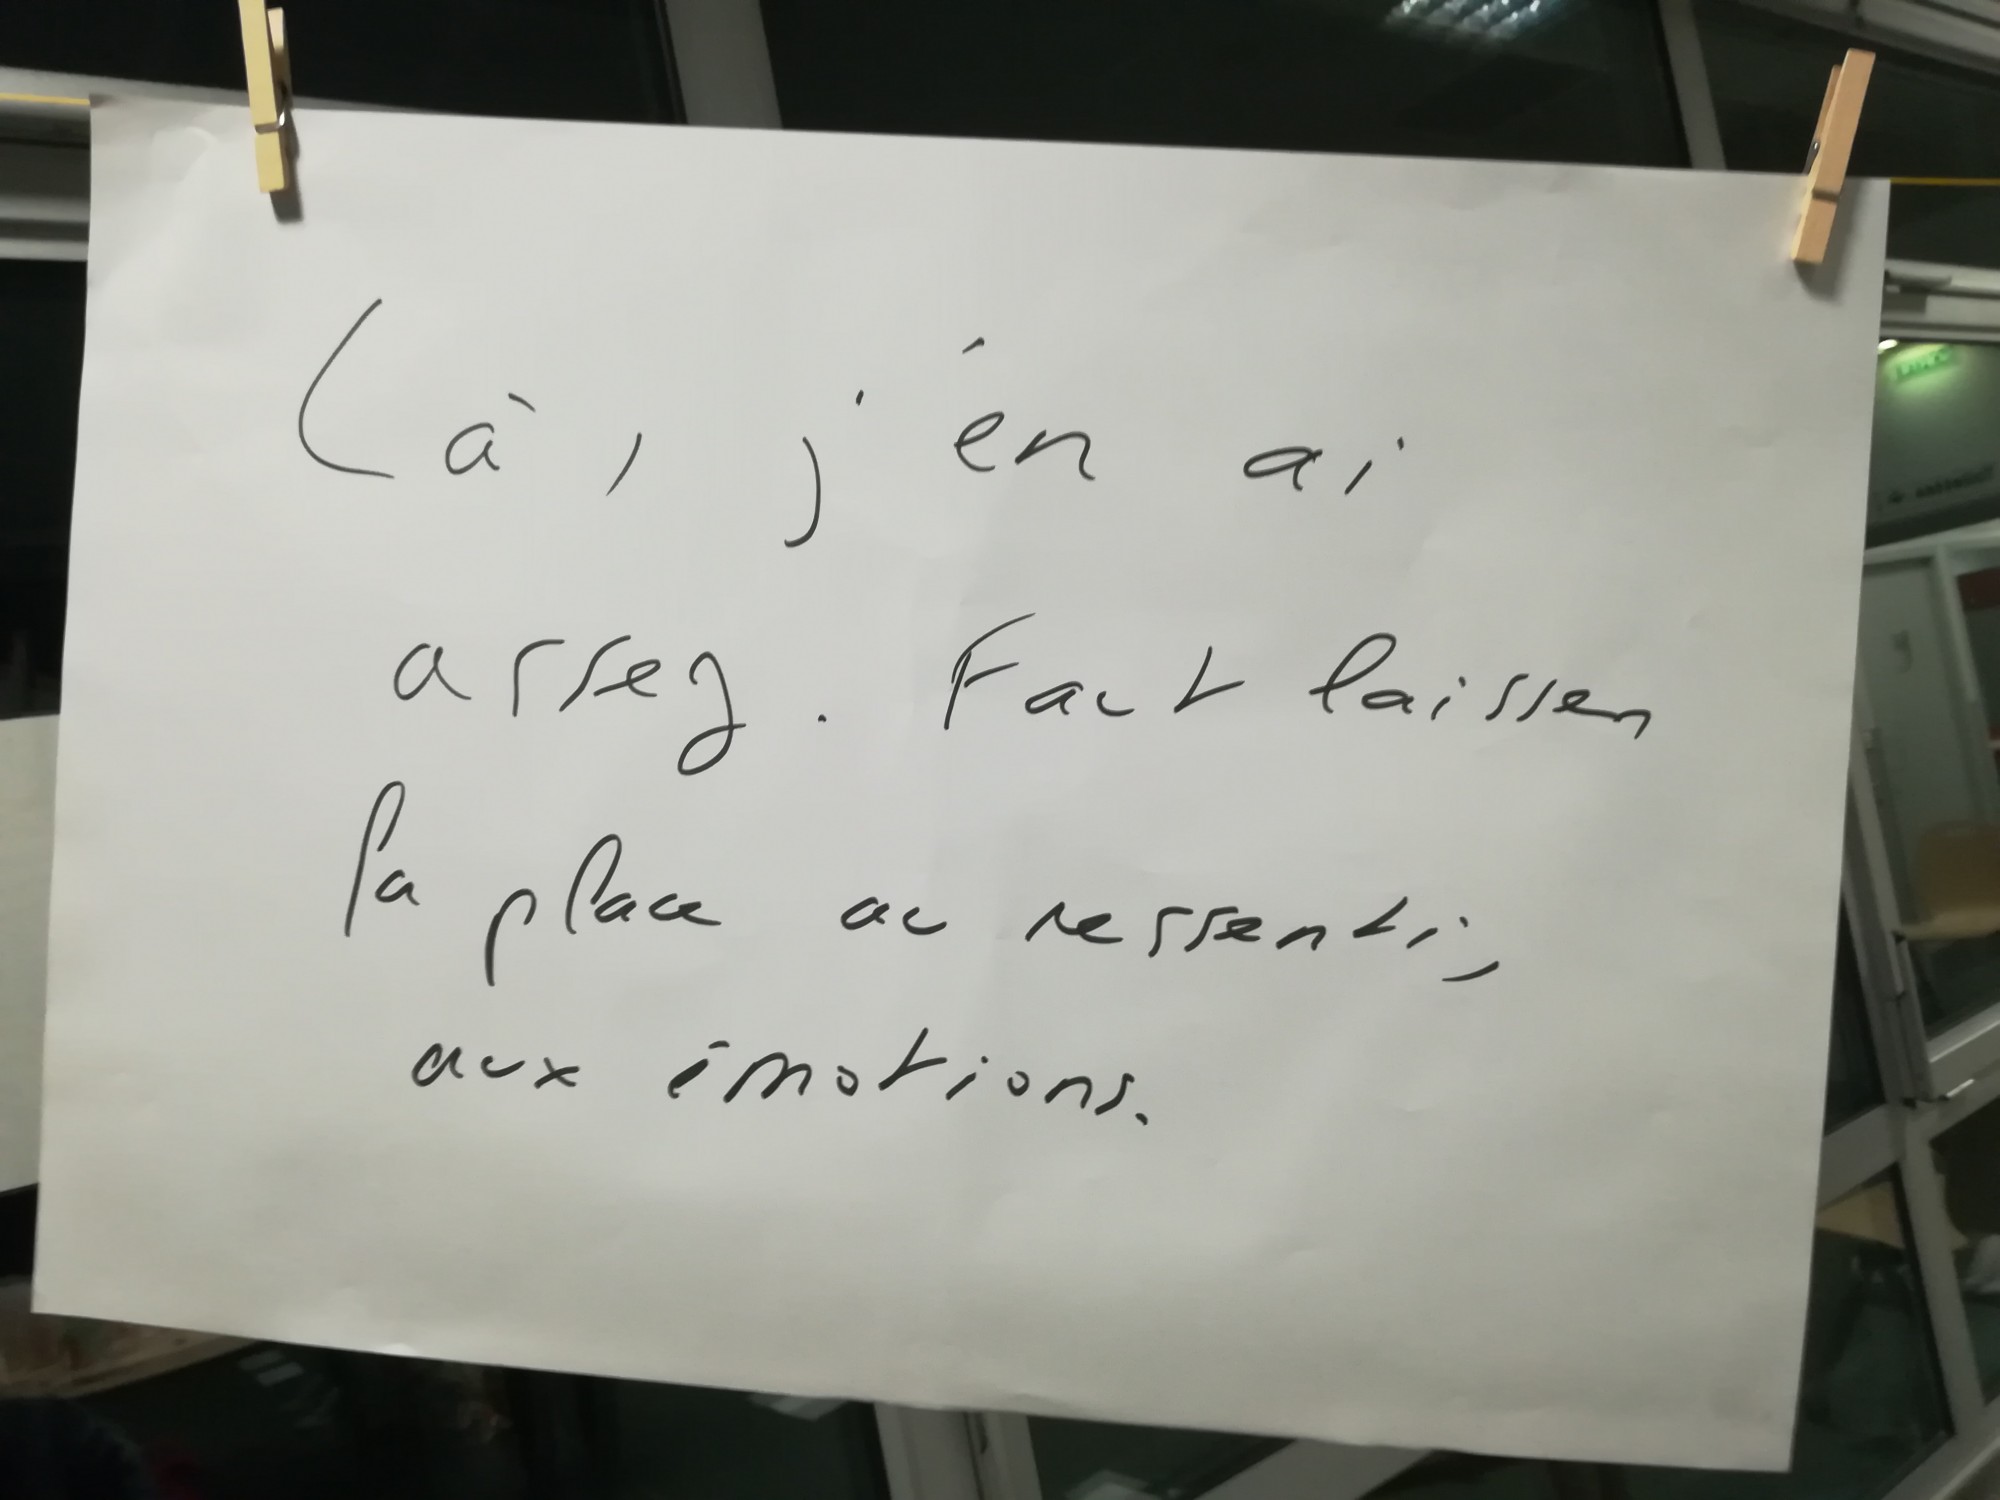 Là, j'en ai
assez. Faut laisser
la place au ressenti,
aux émotions.